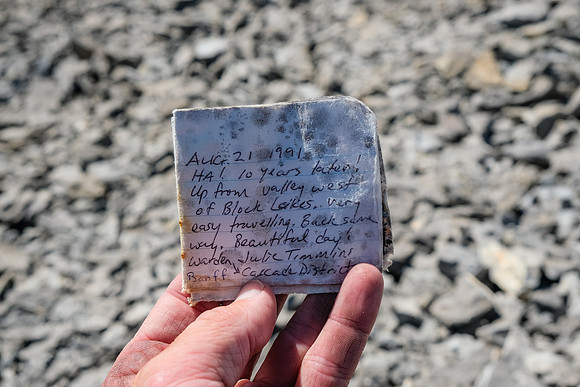 AUG 21 1991
HA! 10 years later!
Up from valley west
of Block Lakes. very
easy travelling. Back same
way. Beautiful day!
Warden Julie Timmins
Banff - Cascade District